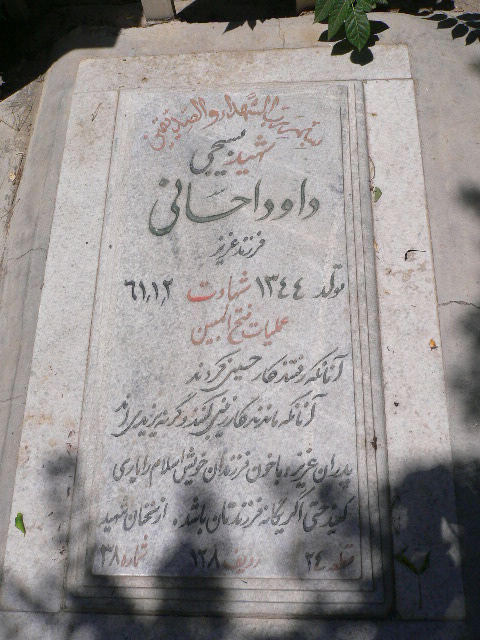 بسم رب الشهداء و الصدیقین
شهید بسیجی
داود احسانی
فرزند عزیز
تولد ۱۳۴۴ شهادت ۶۱٫۱٫۲
عملیات فتح المبین
آنانکه رفتند کار حسینی کردند
آنانکه ماندند کار زینبی کنند وگرنه یزیدی اند
پدران عزیز، با خون فرزندان خویش اسلام را یاری
کنید حتی اگر یگانه فرزندتان باشد. از سخنان شهید
قطعه ۲۴ ردیف ۱۲۸ شماره ۳۸